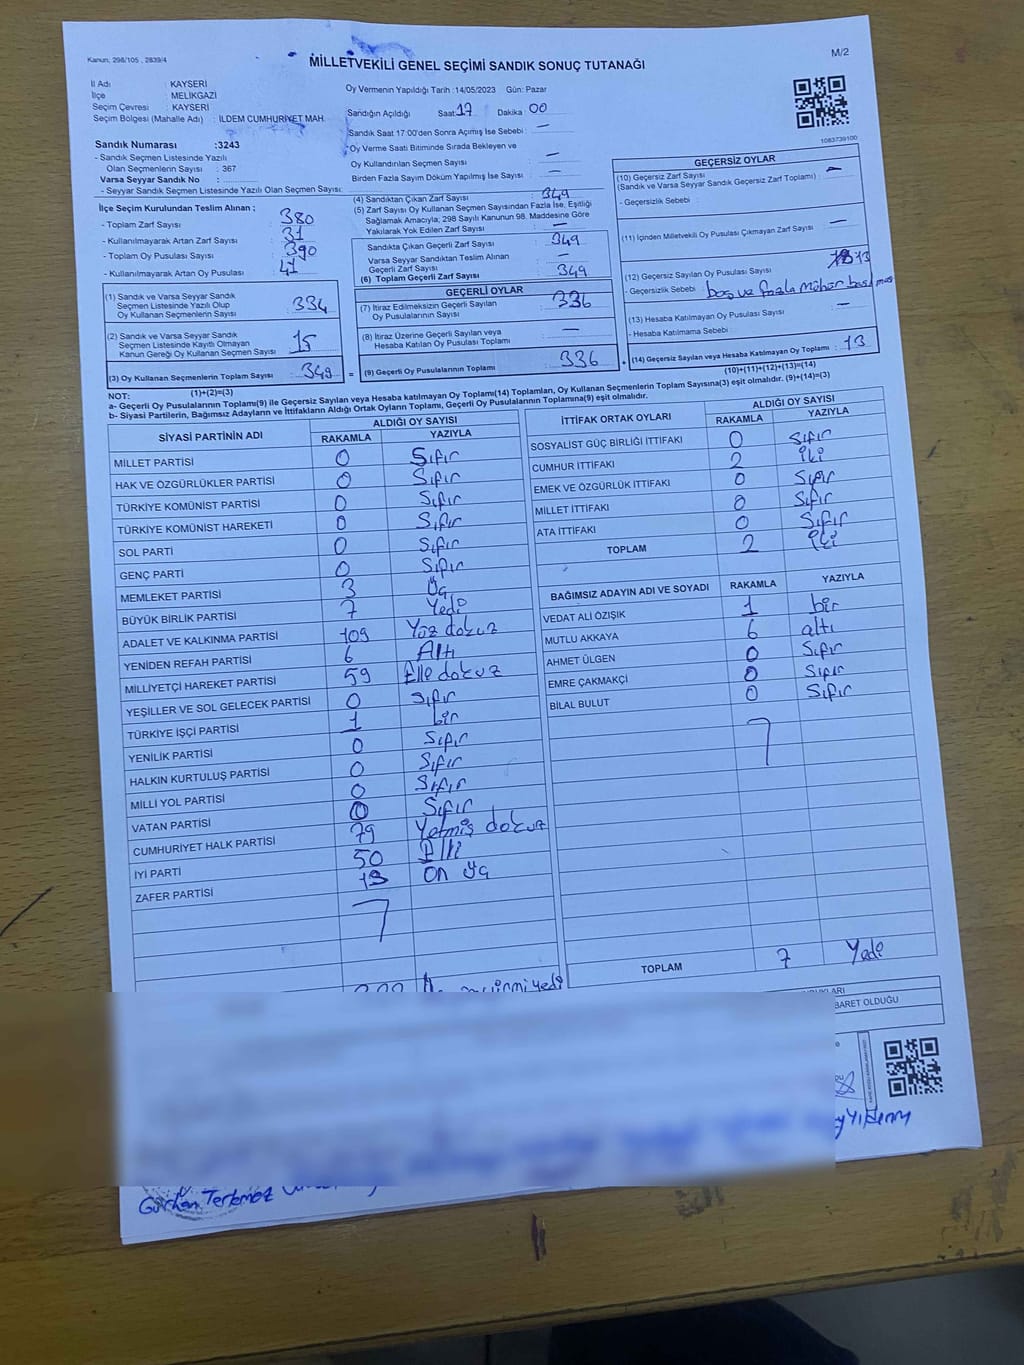 Kanun; 298/105 , 2839/4
M/2
MİLLETVEKİLİ GENEL SEÇİMİ SANDIK SONUÇ TUTANAĞI
İl Adı : KAYSERİ
İlçe : MELİKGAZİ
Seçim Çevresi : KAYSERİ
Seçim Bölgesi (Mahalle Adı) : İLDEM CUMHURİYET MAH.
Sandık Numarası :3243
- Sandık Seçmen Listesinde Yazılı
Olan Seçmenlerin Sayısı : 367
Varsa Seyyar Sandık No :
- Seyyar Sandık Seçmen Listesinde Yazılı Olan Seçmen Sayısı:
Oy Vermenin Yapıldığı Tarih :14/05/2023 Gün: Pazar
Sandığın Açıldığı Saat: 17 Dakika : 00
Sandık Saat 17:00'den Sonra Açımış İse Sebebi : —
Oy Verme Saati Bitiminde Sırada Bekleyen ve
Oy Kullandırılan Seçmen Sayısı : —
Birden Fazla Sayım Döküm Yapılmış İse Sayısı : —
1083739100
İlçe Seçim Kurulundan Teslim Alınan ;
- Toplam Zarf Sayısı : 380
- Kullanılmayarak Artan Zarf Sayısı : 31
- Toplam Oy Pusulası Sayısı : 390
- Kullanılmayarak Artan Oy Pusulası : 41
(1) Sandık ve Varsa Seyyar Sandık
Seçmen Listesinde Yazılı Olup
Oy Kullanan Seçmenlerin Sayısı : 334
(2) Sandık ve Varsa Seyyar Sandık
Seçmen Listesinde Kayıtlı Olmayan
Kanun Gereği Oy Kullanan Seçmen Sayısı : 15
(3) Oy Kullanan Seçmenlerin Toplam Sayısı : 349 =
(1)+(2)=(3)
(4) Sandıktan Çıkan Zarf Sayısı : 349
(5) Zarf Sayısı Oy Kullanan Seçmen Sayısından Fazla İse, Eşitliği
Sağlamak Amacıyla; 298 Sayılı Kanunun 98. Maddesine Göre
Yakılarak Yok Edilen Zarf Sayısı : —
Sandıkta Çıkan Geçerli Zarf Sayısı : 349
Varsa Seyyar Sandıktan Teslim Alınan
Geçerli Zarf Sayısı : —
(6) Toplam Geçerli Zarf Sayısı : 349
GEÇERLİ OYLAR
(7) İtiraz Edilmeksizin Geçerli Sayılan
Oy Pusulalarının Sayısı : 336
(8) İtiraz Üzerine Geçerli Sayılan veya
Hesaba Katılan Oy Pusulası Toplamı : —
(9) Geçerli Oy Pusulalarının Toplamı : 336 +
GEÇERSİZ OYLAR
(10) Geçersiz Zarf Sayısı : —
(Sandık ve Varsa Seyyar Sandık Geçersiz Zarf Toplamı)
- Geçersizlik Sebebi :
(11) İçinden Milletvekili Oy Pusulası Çıkmayan Zarf Sayısı : —
(12) Geçersiz Sayılan Oy Pusulası Sayısı : 13
- Geçersizlik Sebebi : boş ve fazla mühür basılması
(13) Hesaba Katılmayan Oy Pusulası Sayısı : —
- Hesaba Katılmama Sebebi :
(14) Geçersiz Sayılan veya Hesaba Katılmayan Oy Toplamı : 13
(10)+(11)+(12)+(13)=(14)
NOT:
a- Geçerli Oy Pusulalarının Toplamı(9) ile Geçersiz Sayılan veya Hesaba katılmayan Oy Toplamı(14) Toplamları, Oy Kullanan Seçmenlerin Toplam Sayısına(3) eşit olmalıdır. (9)+(14)=(3)
b- Siyasi Partilerin, Bağımsız Adayların ve İttifakların Aldığı Ortak Oyların Toplamı, Geçerli Oy Pusulalarının Toplamına(9) eşit olmalıdır.
SİYASİ PARTİNİN ADI ALDIĞI OY SAYISI
RAKAMLA YAZIYLA
MİLLET PARTİSİ 0 Sıfır
HAK VE ÖZGÜRLÜKLER PARTİSİ 0 Sıfır
TÜRKİYE KOMÜNİST PARTİSİ 0 Sıfır
TÜRKİYE KOMÜNİST HAREKETİ 0 Sıfır
SOL PARTİ 0 Sıfır
GENÇ PARTİ 0 Sıfır
MEMLEKET PARTİSİ 3 Üç
BÜYÜK BİRLİK PARTİSİ 7 Yedi
ADALET VE KALKINMA PARTİSİ 109 Yüz dokuz
YENİDEN REFAH PARTİSİ 6 Altı
MİLLİYETÇİ HAREKET PARTİSİ 59 Elle dokuz
YEŞİLLER VE SOL GELECEK PARTİSİ 0 Sıfır
TÜRKİYE İŞÇİ PARTİSİ 1 bir
YENİLİK PARTİSİ 0 Sıfır
HALKIN KURTULUŞ PARTİSİ 0 Sıfır
MİLLİ YOL PARTİSİ 0 Sıfır
VATAN PARTİSİ 0 Sıfır
CUMHURİYET HALK PARTİSİ 79 Yetmiş dokuz
İYİ PARTİ 50 Elli
ZAFER PARTİSİ 13 On üç
İTTİFAK ORTAK OYLARI ALDIĞI OY SAYISI
RAKAMLA YAZIYLA
SOSYALİST GÜÇ BİRLİĞİ İTTİFAKI 0 Sıfır
CUMHUR İTTİFAKI 2 İki
EMEK VE ÖZGÜRLÜK İTTİFAKI 0 Sıfır
MİLLET İTTİFAKI 0 Sıfır
ATA İTTİFAKI 0 Sıfır
TOPLAM 2 İki
BAĞIMSIZ ADAYIN ADI VE SOYADI RAKAMLA YAZIYLA
VEDAT ALİ ÖZIŞIK 1 bir
MUTLU AKKAYA 6 altı
AHMET ÜLGEN 0 Sıfır
EMRE ÇAKMAKÇİ 0 Sıfır
BİLAL BULUT 0 Sıfır
TOPLAM 7 Yedi
BARET OLDUĞU
Gürkan Terlemez